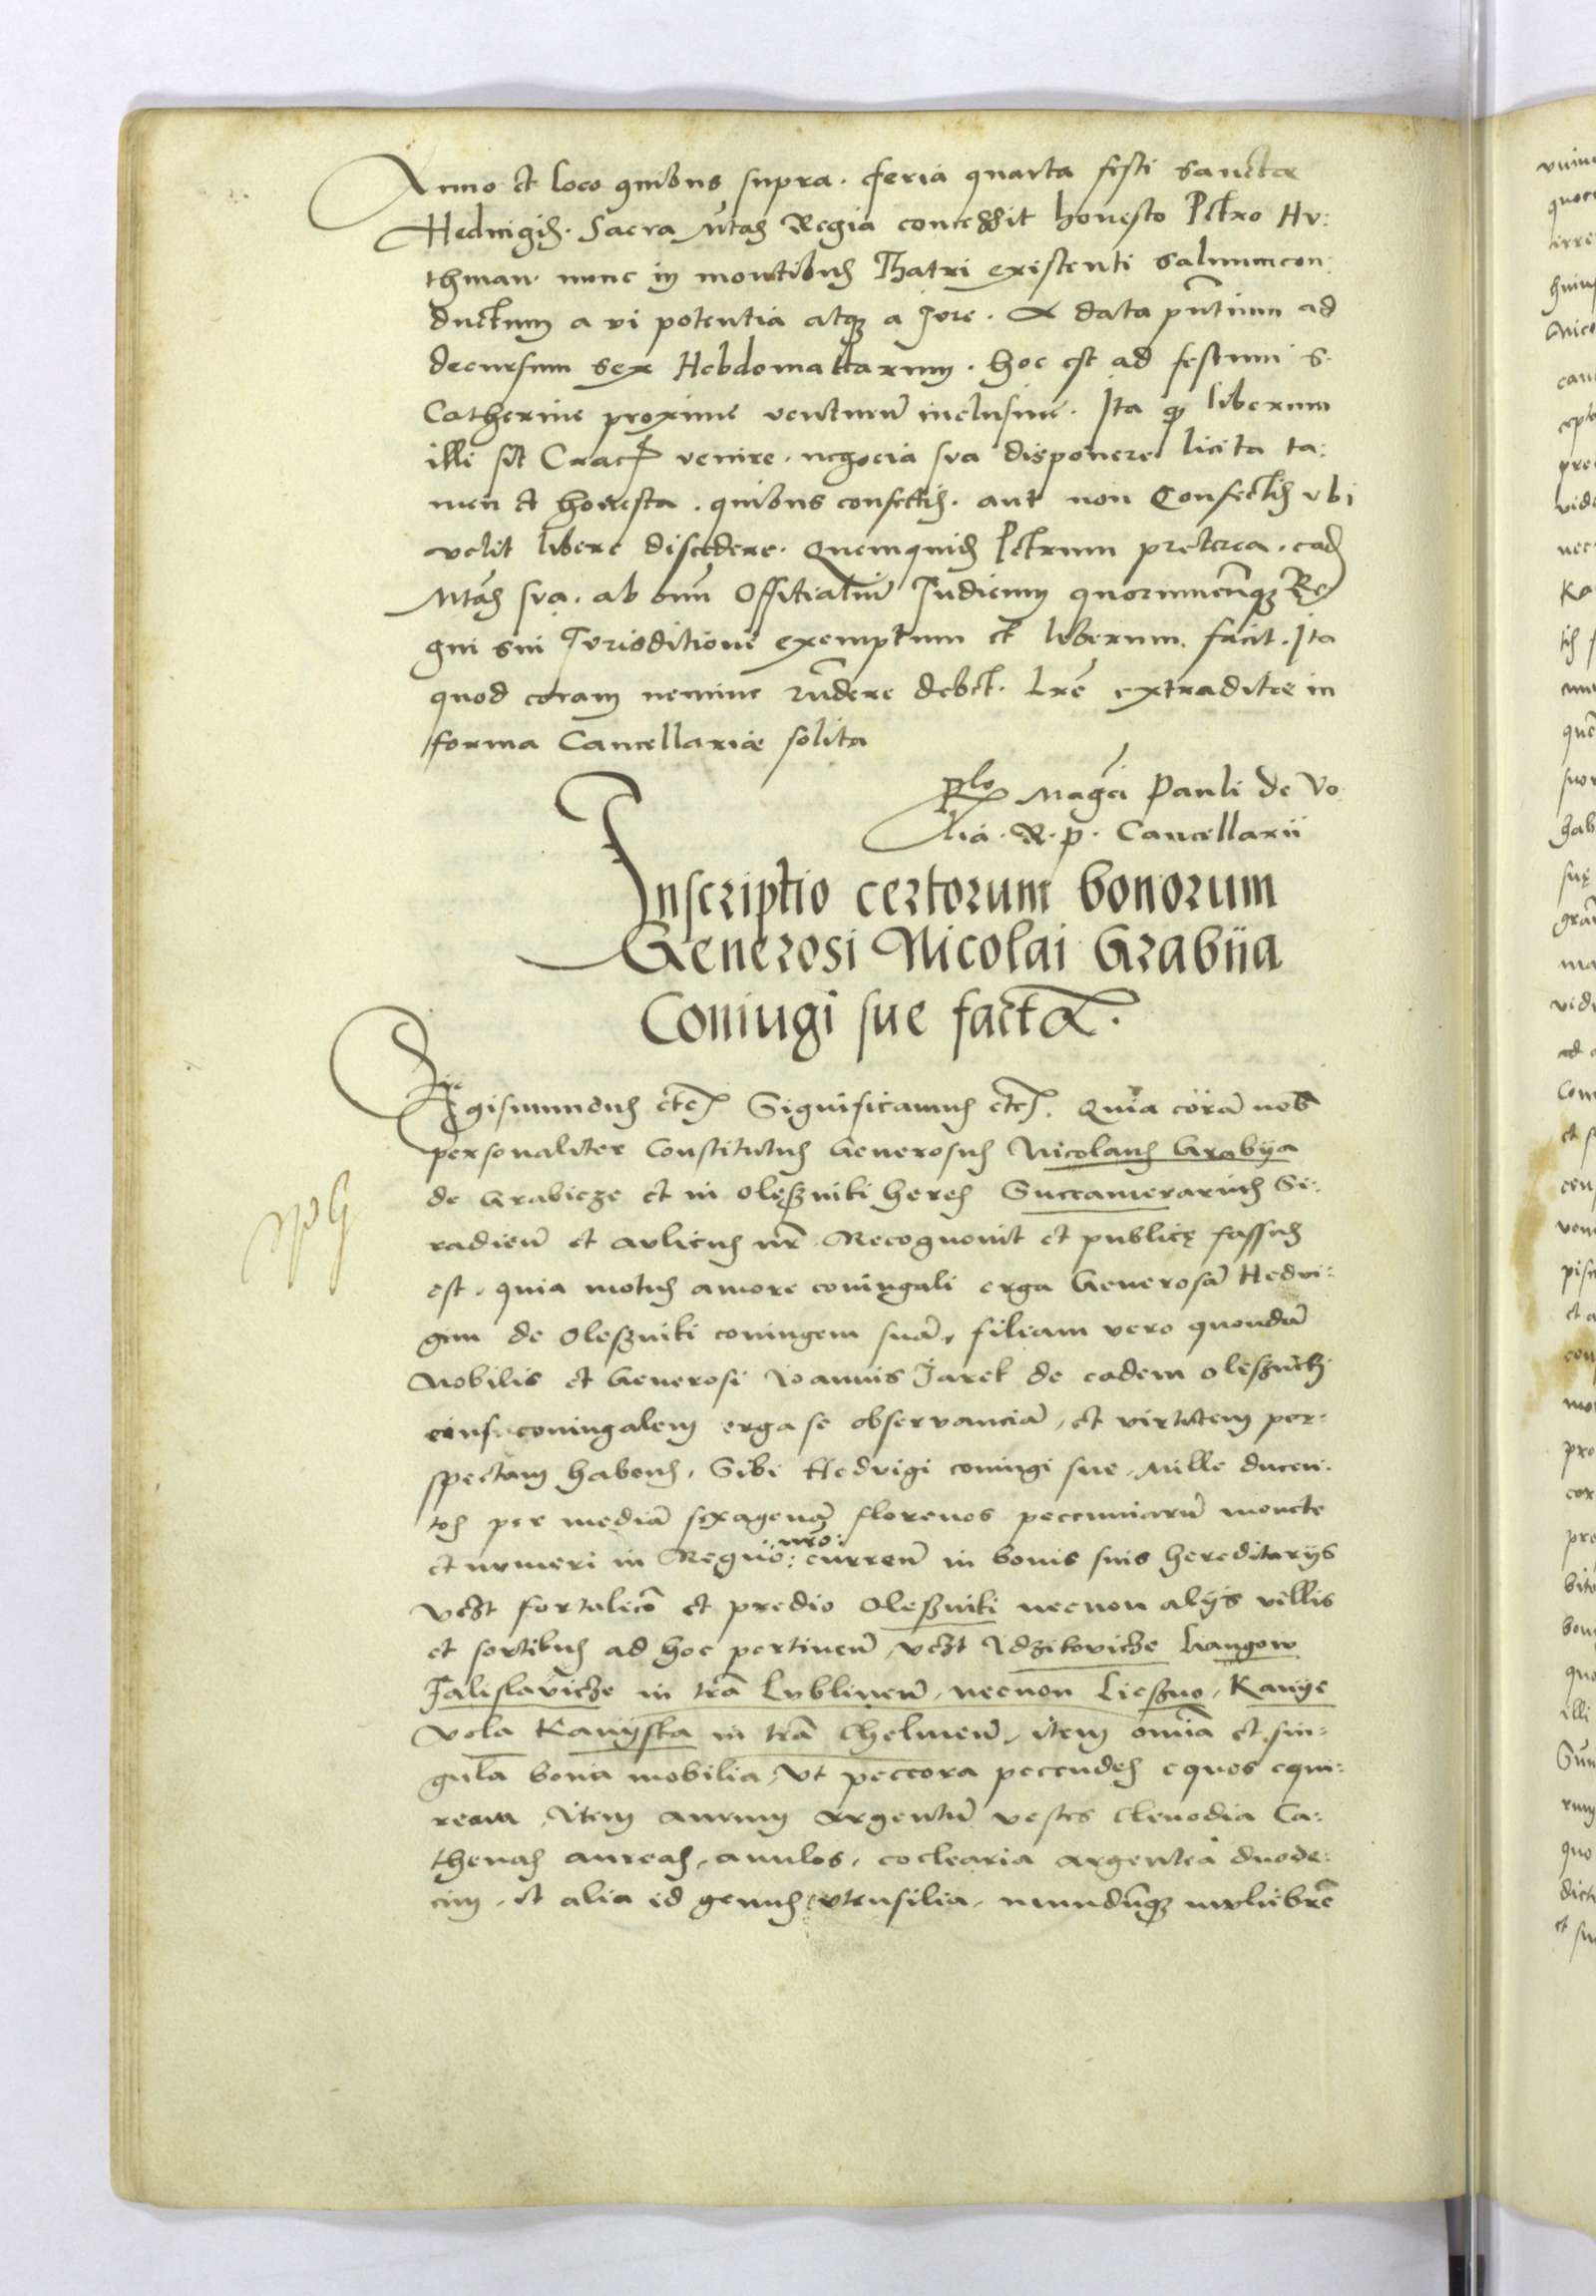 Anno et loco quibus supra. feria quarta festi sanctæ
Hedwigis. Sacra Mtas Regia concessit honesto Petro Hu:
thman. nunc in montibus Thatri existenti salvumcon:
ductum a vi potentia atq3 a iure. A data pñtium ad
decursum sex Hebdomattarum. hoc est ad festum S.
Catherine proxime venturũ inclusive. Ita q liberum
illi sit Crac venire. negocia sva disponere licita ta:
men et honesta. quibus confectis. aut non Confectis vbi
velit libere discedere. Quemquid Petrum preterea. ead
Mtas sva. ab omĩ Offitialiũ Iudicum quorumcũq3 Re
gni sui Jurisditione exemptum et liberum facit. Ita
quod coram nemine rñdere debet. Lrẽ extraditæ in
forma Cancellariæ solita
Rlo Magci Pauli de Vo
lia. R. p. Cancellarii
Inscriptio certorum bonorum
Generosi Nicolai Grabiia
Coniugi sue facta.
Sigismundus etc. Significamus etc. Quia corã nob
personaliter Constitutus Generosus Nicolaus Grabija
de Grabicze et in Oleszniki heres Succamerarius Si:
radieñ et aulicus nr̃ Recognovit et publicę fassus
est. quia motus amore coniugali erga Generosã Hedvi:
gim de Oleszniki coniugem suã, filiam vero quondã
Nobilis et Generosi Ioannis Jarek de eadem Oleszniki
eius coniugalem erga se observanciã, et virtutem per:
spectam habens, Sibi Hedvigi coniugi sue, Mille ducen:
tos per mediã sexagenã florenos peccuniarũ monete
et numeri in Regno: nr̃o: curreñ in bonis suis hereditarijs
vczt fortalicõ et predio Oleszniki necnon alijs villis
et sortibus ad hoc pertineñ vczt Idzikovicze Gangow
Jalislavicze in trã Lublineñ, necnon Lieszno, Kanye
Vola Kanijska in trã Chelmeñ, item omĩa et sin:
gula bona mobilia, vt peccora peccudes equos equi:
reaa, item aurum argentũ vestes clenodia Ca:
thenas aureas, anulos, coclearia argentea duode:
cim, et alia id genus vtensilia, mundũq3 mvliebrẽ